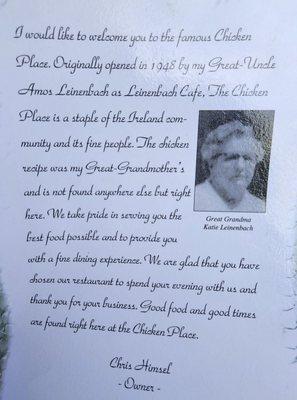 I would like to welcome you to the famous Chicken
Place. Originally opened in 1948 by my Great-Uncle
Amos Leinenbach as Leinenbach Cafe, The Chicken
Place is a staple of the Ireland com-
munity and its fine people. The chicken
recipe was my Great-Grandmother's
and is not found anywhere else but right
here. We take pride in serving you the
best food possible and to provide you
with a fine dining experience. We are glad that you have
chosen our restaurant to spend your evening with us and
thank you for your business. Good food and good times
are found right here at the Chicken Place.
Great Grandma
Katie Leinenbach
Chris Himsel
- Owner -